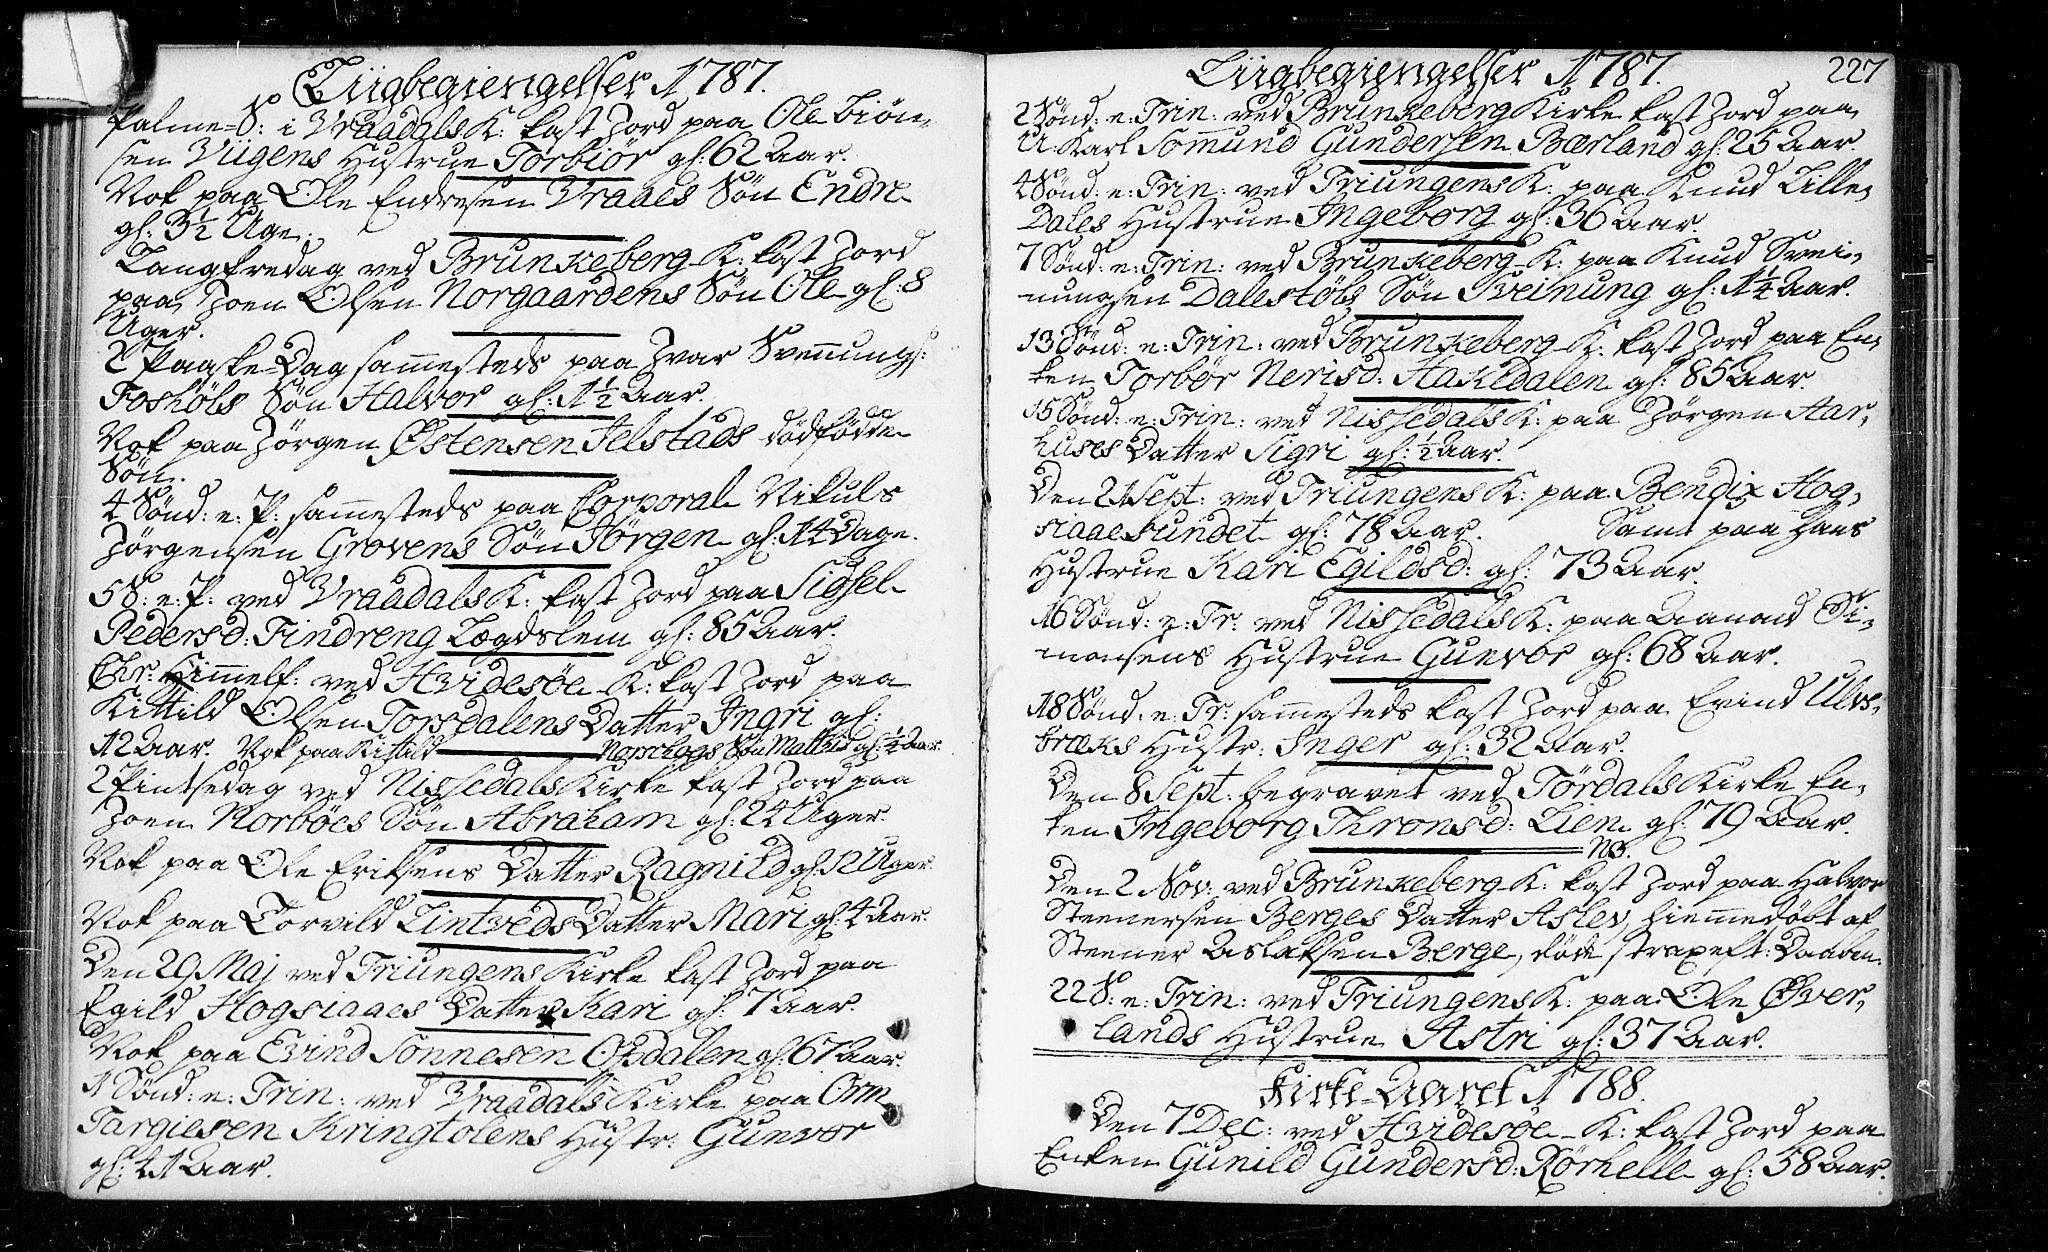 Liigbegiengelser 1787.
Palme-S: i VraadalsK: kast Jord paa Ole Biön-
sen Viigens Hustrue Torbiör gl: 62 Aar.
Nok paa Ole Endresen Vraaes Søn Endre
gl: 3½ Uge.
Langfredag ved Brunkeberg K: kast Jord
paa Joen Olsen Norgaardens Søn Ole gl: 8
Uger.
2 Paaske-Dag sam̄esteds paa Ivar Sven̄ungs:
Foshöls Søn Halvor gl: 1½ Aar.
Nok paa Jörgen Østensen Jelstads dödfödde
Søn.
4 Sönd: e: P: sam̄esteds paa Corporal Nikuls
Jörgensen Grovens Søn Jörgen gl: 14 Dage.
5 S: e: P: ved VraadalsK: kast Jord paa Sigsel
Pedersd: Findreng Lægdslem gl: 85 Aar.
Chr: Him̄elf: ved Hvidesöe K: kast Jord paa
Kittild Olsen Torsdalens Datter Ingri gl:
12 Aar. Nok paa Kittild Norskogs Søn Mathis gl: ½ Aar.
2 Pintsedag ved Nissedals Kirke kast Jord paa
Joen Norböes Søn Abraham gl: 24 Uger.
Nok paa Ole Eriksens Datter Ragnild gl: 12 Uger.
Nok paa Torvild Lintveds Datter Mari gl: 4 Aar.
Den 29 Maj ved Triungens Kirke kast Jord paa
Egild Hogsiaaes Datter Kari gl: 7 Aar.
Nok paa Evind Sonnesen Opdalen gl: 67 Aar.
1 Sönd: e: Trin: ved Vraadals Kirke paa Orm
Targiesen Kringtolens Hustr: Gunvor
gl: 41 Aar.
Liigbegiengelser 1787.
227
2 Sönd: e: Trin: ved Brunkeberg Kirke kast Jord paa
U: Karl Som̄und Gundersen Bærland gl: 25 Aar.
4 Sönd: e: Trin: ved Triungens K: paa Knud Lille-
Dales Hustrue Ingeborg gl: 36 Aar.
7 Sönd: e: Trin: ved Brunkeberg K: paa Knud Svei-
nungsen Dalestöls Søn Sveinung gl: 1¼ Aar.
13 Sönd: e: Trin: ved Brunkeberg K: kast Jord paa En-
ken Torbör Nerisd: Aakedalen gl: 85 Aar.
15 Sönd: e: Trin: ved Nissedals K: paa Jörgen Aar-
huses Datter Sigri gl: ½ Aar.
Den 21 Sept: ved Triungens K: paa Bendix Hog-
siaaesundet gl: 78 Aar. Samt paa Hans
Hustrue Kari Egildsd: gl: 73 Aar.
16 Sönd: e: Tr: ved Nissedals K: paa Aanand Si-
monsens Hustrue Gunvor gl: 68 Aar.
18 Sönd: e: Tr: sam̄esteds kast Jord paa Evind Ulvs-
træks Hustr: Inger gl: 32 Aar.
Den 8 Sept: begravet ved Tördals Kirke En-
ken Ingeborg Thronsd: Lien gl: 79 Aar.
NB.
Den 2 Nov: ved Brunkeberg K: kast Jord paa Halvor
Steenersen Berges Datter Aslev, hiem̄edöbt af
Steener Aslaksen Berge, döde straxeft: Daaben.
22 S: e: Trin: ved Triungens K: paa Ole Øver-
lands Hustrue Astri gl: 37 Aar.
Kirke-Aaret 1788.
Den 7 Dec: ved Hvidesöe K: kast Jord paa
Enken Gunild Gundersd: Rörhelle gl: 58 Aar.